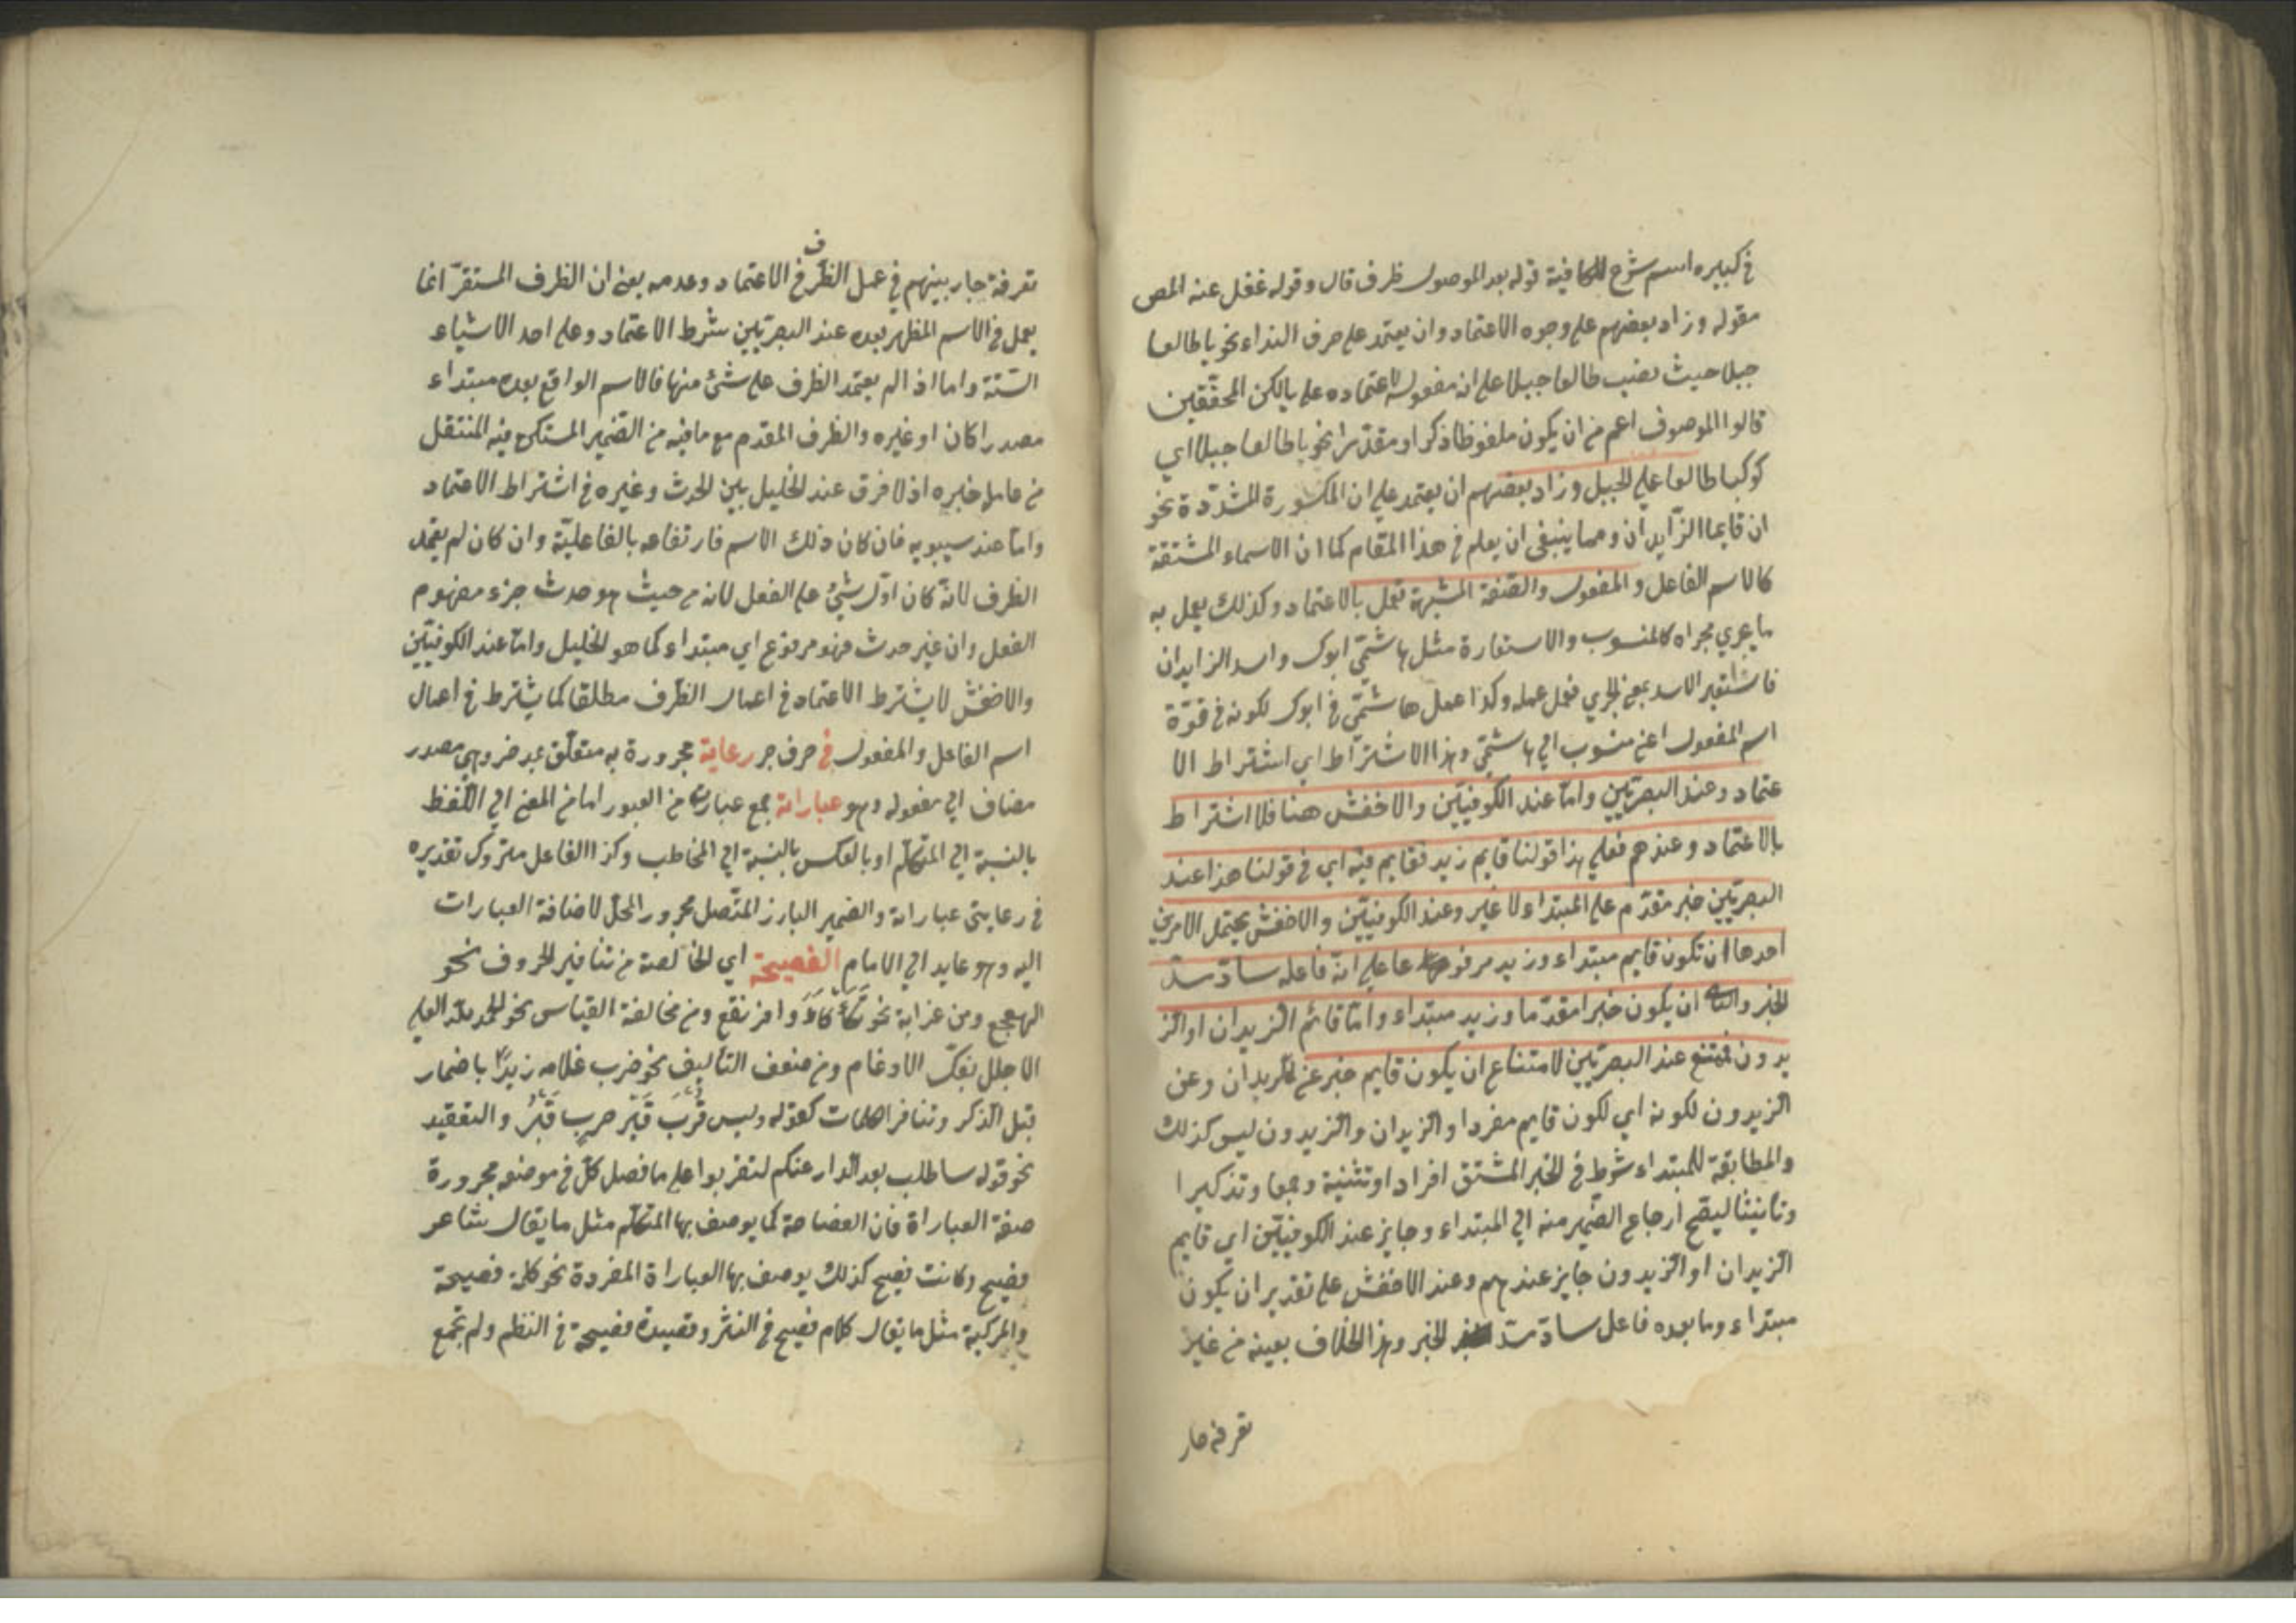 في كبيره اسم شرح الكافية قوله بعد الموصول ظرف قال وقوله غفل عنه المص
مقوله وزاد بعضهم على وجوه الاعتماد وان يعتمد على حرف النداء نحو يا طالعا
جبلا حيث نصب طالعا جبلا على انه مفعوله لاعتماده على يا لكن المحققين
قالوا الموصوف اعم من ان يكون ملفوظا ذكرا او مقدّرا نحو يا طالعا جبلا اي
كوكبا طالعا على الجبل وزاد بعضهم ان يعتمد على ان المكسورة المشدّدة نحو
ان قايما الزّايدان ومما ينبغى ان يعلم في هذا المقام كما ان الاسماء المشتقة
كالاسم الفاعل والمفعول والصّفة المشبهة تعمل بالاعتماد وكذلك يعمل به
ما يجري مجراه كالمنسوب والاستعارة مثل هاشمّي ابوك واسد الزايدان
فاستعير الاسد بمعنى الجري فعمل عمله وكذا عمل هاشمّي في ابوك لكونه في قوّة
اسم المفعول اعني منسوب الي هاشمّي وهذا الاشتراط اي اشتراط الا
عتماد وعند البصريّين وامّا عند الكوفيّين والاخفش هنا فلا اشتراط
بالاعتماد وعندهم فعلي هذا قولنا قايم زيد فقايم فيه اي في قولنا هذا عند
البصريّين خبر مقدّم على المبتداء لا غير وعند الكوفيّين والاخفش يحتمل الامرين
احدها ان تكون قايم مبتداء وزيد مرفوعا على انه فاعله سادّ سدّ
الخبر والثاني ان يكون خبرا مقدّما وزيد مبتداء وامّا قائم الزيدان او الز
يدون فمتنع عند البصريّين لامتناع ان يكون قايم خبر عن الزيدان وعن
الزيدون لكونه اي لكون قايم مفردا والزيدان والزيدون ليس كذلك
والمطابقة للمبتداء شرط في الخبر المشتق افرادا وتثنية وجمعا وتذكيرا
وتأنيثا ليصحّ ارجاع الضّمير منه الي المبتداء وجايز عند الكوفيّين اي قايم
الزيدان او الزيدون جايز عندهم وعند الاخفش على تقدير ان يكون
مبتداء وما بعده فاعل سادّ سدّ الخبر وهذا الخلاف بعينه من غير
تفرقة جار
تفرقة جار بينهم في عمل الظّرف في الاعتماد وعدمه يعني ان الظرف المستقرّ انما
يعمل في الاسم المظهر بعده عند البصريّين شرط الاعتماد وعلى احد الاشياء
الستّة واما اذا لم يعتمد الظرف على شئ منها فالاسم الواقع بعده مبتداء
مصدرا كان او غيره والظرف المقدم مع ما فيه من الضّمير المستكن فيه المنتقل
من عامله خبره اذ لا فرق عند الخليل بين الحدث وغيره في اشتراط الاعتماد
وامّا عند سيبويه فان كان ذلك الاسم فارتفاعه بالفاعليّة وان كان لم يعتمد
الظرف لانّه كان اوّل شئ على الفعل لانه من حيث هو حدث جزء مفهوم
الفعل وان غير حدث فهو مرفوع اي مبتداء كما هو للخليل وامّا عند الكوفيّين
والاخفش لا يشترط الاعتماد في اعمال الظّرف مطلقا كما يشترط في اعمال
اسم الفاعل والمفعول في حرف جر رعاية مجرورة به متعلّق بمد ضروهي مصدر
مضاف الي مفعوله وهو عباراته جمع عبارة من العبور اما من المعنى الي اللّفظ
بالنسبة الي المتكلّم او بالعكس بالنسبة الي المخاطب وكذا الفاعل متروك تقديره
في رعايتي عباراته والضمير البارز المتّصل مجرور المحلّ لاضافة العبارات
اليه وهو عايد الي الامام الفصيحة اي الخالصة من تنافير الحروف نحو
الهعجع ومن غرابة نحو تَكَأْكَأَ وافرنقع ومن مخالفة القياس نحو الحمد لله العلي
الاجلل بفكّ الادغام ومن ضعف التأليف نحو ضرب غلامه زيدًا باضمار
قبل الذّكر وتنافر الكلمات كقوله وليس قُرْبَ قَبْرِ حربٍ قَبْرُ والتعقيد
نحو قوله ساطلب بعد الدار عنكم لتقربوا على ما فصل كلّ في موضعه مجرورة
صفة العباراة فان الفصاحة كما يوصف بها المتكلّم مثل ما يقال شاعر
فصيح وكاتب فصيح كذلك يوصف بها العباراة المفردة نحو كلمة فصيحة
والمركبة مثل ما يقال كلام فصيح في النثر وقصيدة فصيحة في النظم ولم تجمع